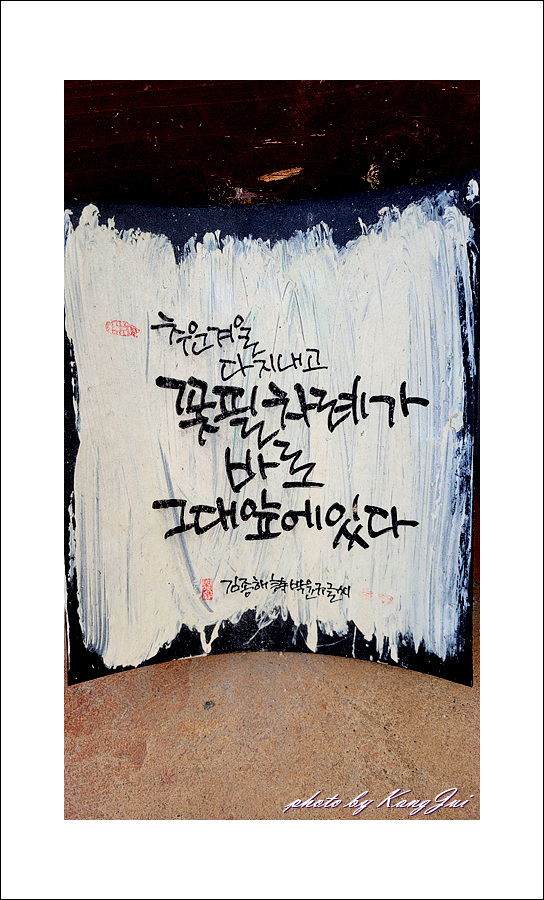 추운겨울
다지내고
꽃필차례가
바로
그대앞에있다
김종해 詩 박윤규글씨
photo by KangJui